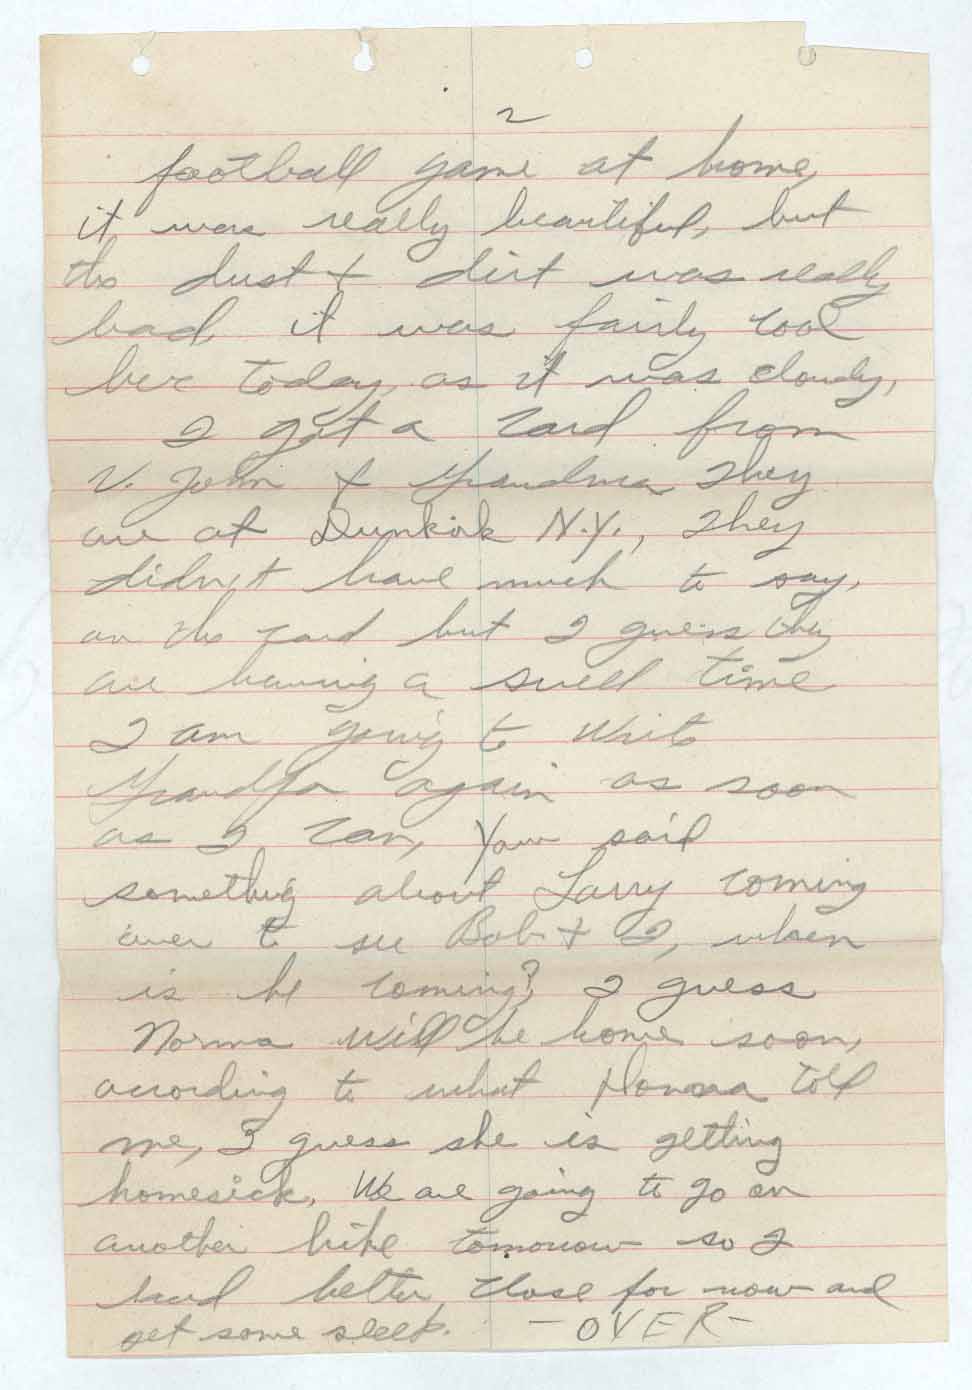 2
football game at home,
it was really beautiful, but
the dust + dirt was really
bad, it was fairly cool
here today, as it was cloudy,
I got a card from
U. John + Grandma They
are at Dunkirk N.Y., They
didn't have much to say,
on the card but I guess they
are having a swell time
I am going to write
Grandpa again as soon
as I can, You said
something about Larry coming
over to see Bob + I, when
is he coming? I guess
Norma will be home soon,
according to what Donna told
me, I guess she is getting
homesick, We are going to go on
another hike tomorrow so I
had better close for now and
get some sleep. - OVER -